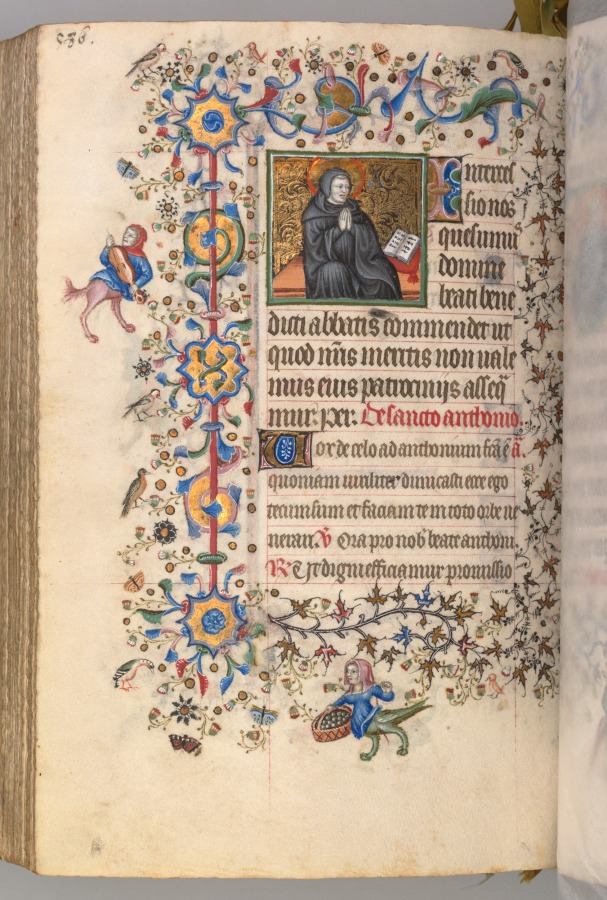 536.
Intercessio nos
quesumus
domine
beati bene
dicti abbatis commendet ut
quod nr̄is meritis non uale
mus eius patrocinijs asseq̄
mur. per. De sancto anthonio.
Vox de celo ad anthonium fc̄a ē. a.
quoniam uiriliter dimicasti ecce ego
tecum sum et faciam te in toto orbe no
minari. V Ora pro nob̄ beate anthoni.
R Ut digni efficiamur promissio